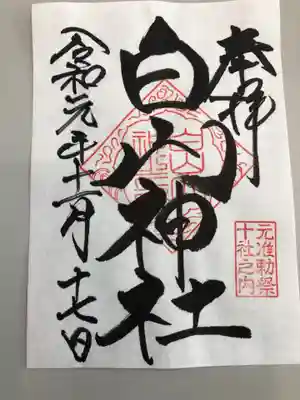 奉拝
白山神社
元准勅祭
十社之内
令和元年十一月十七日